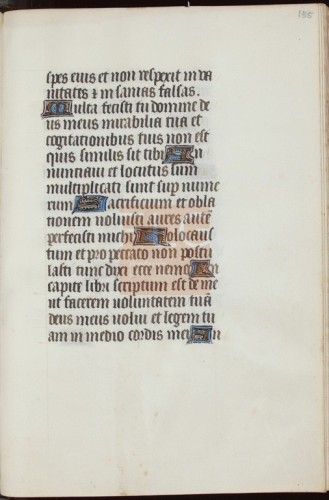 spes eius et non respexit in va
nitates et in sanias falsas.
Multa fecisti tu domine de
us meus mirabilia tua et
cogitationibus tuis non est
quis similis sit tibi An
nuntiavi et locutus sum
multiplicati sunt sup nume
rum Sacrificium et obla
tionem noluisti aures autē
perfecisti michi Holocaus
tum et pro peccato non postu
lasti tunc dixi ecce uenio In
capite libri scriptum est de me
ut facerem uoluntatem tuā
deus meus uolui et legem tu
am in medio cordis mei An